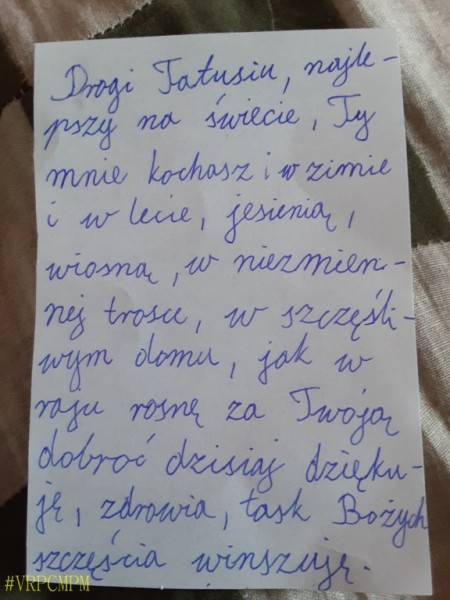 Drogi Tatusiu, najle-
pszy na świecie, Ty
mnie kochasz i w zimie
i w lecie, jesienią,
wiosną, w niezmien-
nej trosce, w szczęśli-
wym domu, jak w
raju rosnę za Twoją
dobroć dzisiaj dzięku-
ję, zdrowia, łask Bożych
szczęścia winszuję.
#VRPCMPM